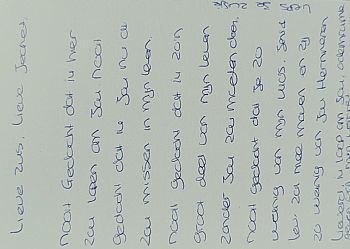 Lieve zus, Lieve Jeanet,
Nooit Gedacht dat ik hier
zou lopen om Jou Nooit
gedacht dat ik Jou nu al
zou missen in mijn leven.
nooit gedacht dat ik zo'n
groot deel van mijn leven
zonder Jou zou moeten doen,
nooit gedacht dat je zo
weinig van mijn
zou mee maken en zij
zo weinig van Jou Herinneren
ik loop om Jou,